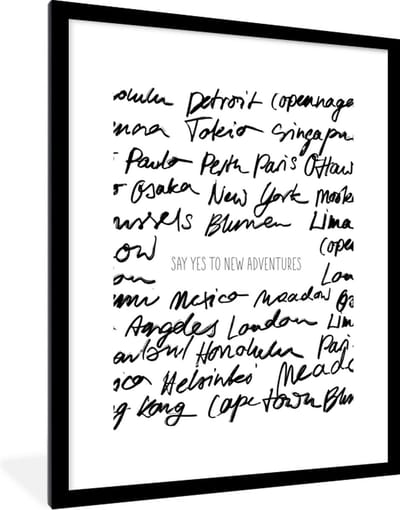 olulu Detroit Copenhage
Tokio Singapu
Paulo Perth Paris Ottaw
Osaka New York
ussels Blumen Lima
ow (open
SAY YES TO NEW ADVENTURES
on Lon
Mexico Meadow
Angeles London Lim
anbul Honolulu Pari
ica Helsinki Meado
g Kong Cape town Blum